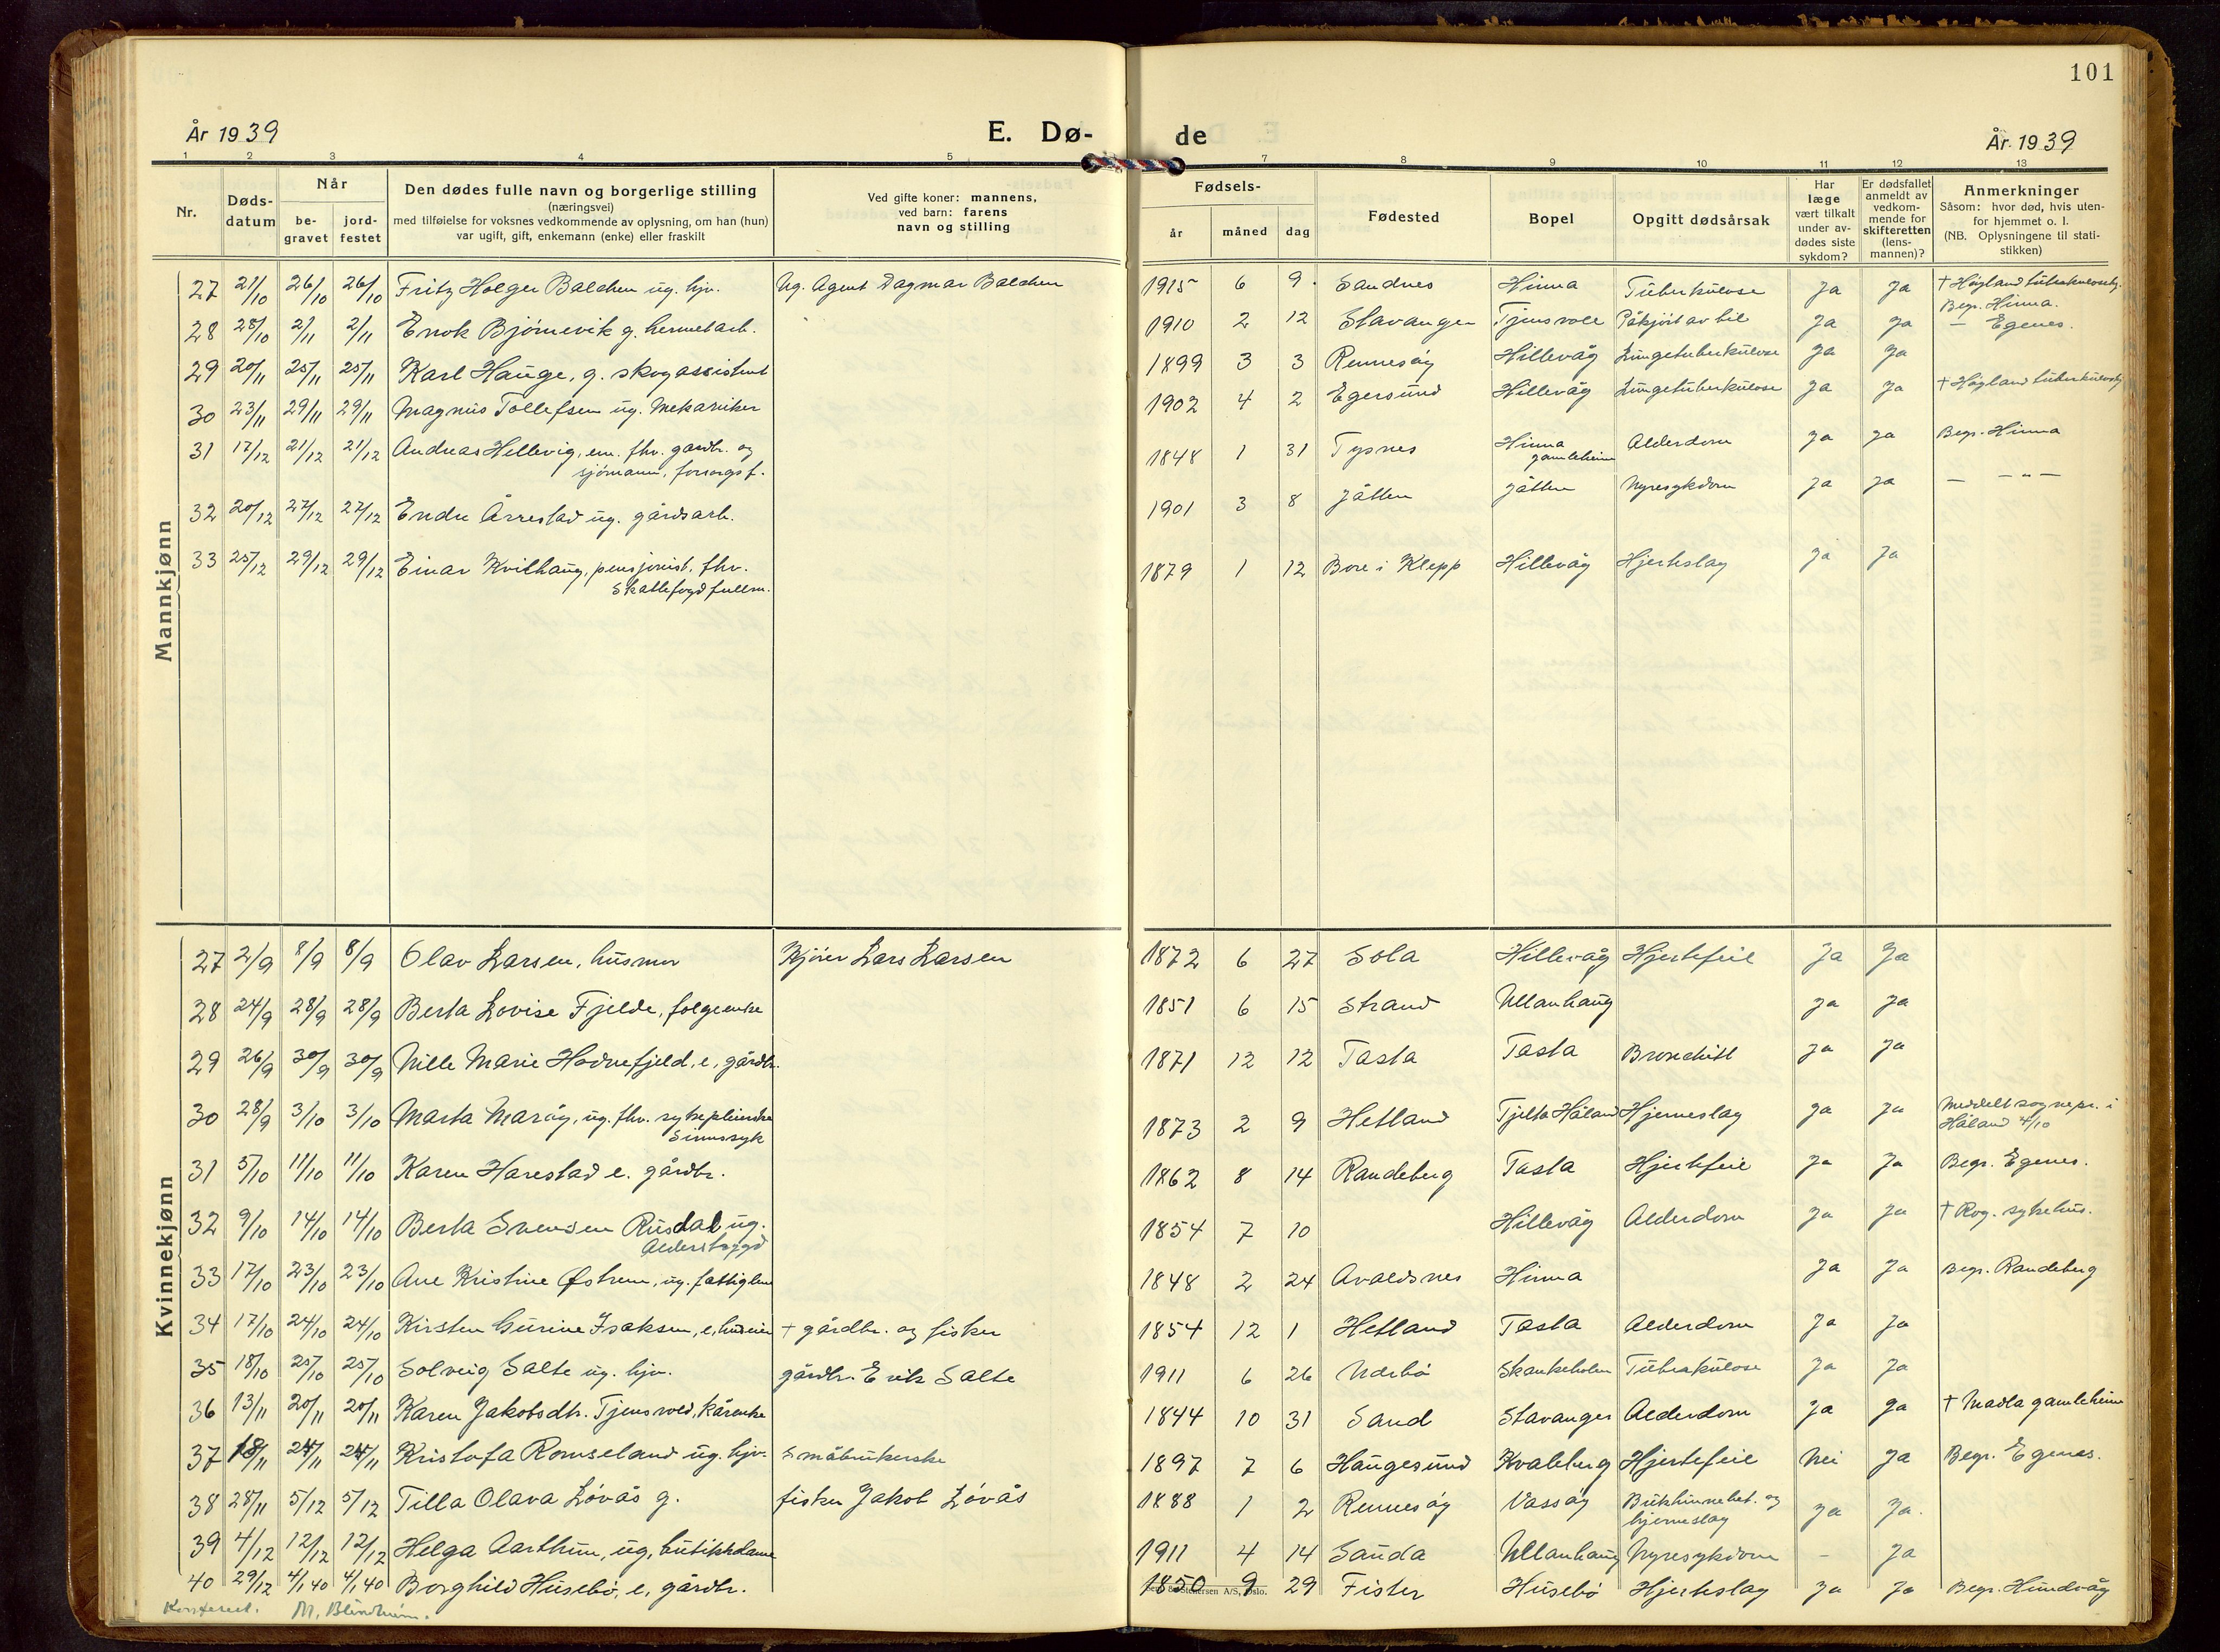 101
År 1939
E. Dø-
de
År 1939
1 2 3 4 5 7 8 9 10 11 12 13
Nr.
Døds-
datum
Når
be-
gravet
jord-
festet
Den dødes fulle navn og borgerlige stilling
(næringsvei)
med tilføielse for voksnes vedkommende av oplysning, om han (hun)
var ugift, gift, enkemann (enke) eller fraskilt
Ved gifte koner: mannens,
ved barn: farens
navn og stilling
Fødsels-
år
måned
dag
Fødested
Bopel
Opgitt dødsårsak
Har
læge
vært tilkalt
under av-
dødes siste
sykdom?
Er dødsfallet
anmeldt av
vedkom-
mende for
skifteretten
(lens-
mannen)?
Anmerkninger
Såsom: hvor død, hvis uten-
for hjemmet o. l.
(NB. Oplysningene til stati-
stikken)
Mannkjønn
27 21/10 26/10 26/10 Fritz Holger Balchen ug. hjv. Ug. Agent Dagmar Balchen 1915 6 9 Sandnes Hinna Tuberkulose Ja Ja † Høyland tuberkulosehj.
Begr. Hinna.
28 28/10 2/11 2/11 Enok Bjørnevik g. hermetarb. 1910 2 12 Stavanger Tjensvoll Påkjørt av bil Ja Ja — Egenes.
29 20/11 25/11 25/11 Karl Hauge, g. skogassistent 1899 3 3 Rennesøy Hillevåg Lungetuberkulose Ja Ja
30 23/11 29/11 29/11 Magnus Tollefsen ug. Mekaniker 1902 4 2 Egersund Hillevåg Lungetuberkulose Ja Ja † Høyland tuberkulosehj
31 17/12 21/12 21/12 Andreas Hellevig, em. fhv. gardbr. og
sjømann, forsorgsf. 1848 1 31 Tysnes Hinna
gamleheim Alderdom Ja Ja Begr. Hinna
32 20/12 27/12 27/12 Endre Årrestad ug. gårdsarb. 1901 3 8 Jåtten Jåtten Nyresykdom Ja Ja — — „ —
33 25/12 29/12 29/12 Einar Kvilhaug, pensjonist. fhv.
Skattefogdfullm. 1879 1 12 Bore i Klepp Hillevåg Hjerteslag Ja Ja
Kvinnekjønn
27 2/9 8/9 8/9 Olav Larsen, husmor Kjører Lars Larsen 1872 6 27 Sola Hillevåg Hjertefeil Ja Ja
28 24/9 28/9 28/9 Berta Lovise Fjelde, følgeenke 1851 6 15 Strand Ullanhaug Ja Ja
29 26/9 30/9 30/9 Nille Marie Hodnefjeld, e. gårdbr. 1871 12 12 Tasta Tasta Bronchitt Ja Ja
30 28/9 3/10 3/10 Marta Marøy, ug. fhv. sykepleierske
Sinnssyk 1873 2 9 Hetland Tjelta Håland Hjerneslag Ja Ja Meddelt sognepr. i
Håland 4/10
31 5/10 11/10 11/10 Karen Harestad e. gårdbr. 1862 8 14 Randeberg Tasta Hjertefeil Ja Ja Begr. Egenes.
32 9/10 14/10 14/10 Berta Svensen Rusdal ug.
Alderstrygd 1854 7 10 Hillevåg Alderdom Ja Ja † Rog. sykehus.
33 17/10 23/10 23/10 Ane Kristine Østrem, ug. fattiglem 1848 2 24 Avaldsnes Hinna Ja Ja Begr. Randeberg
34 17/10 24/10 24/10 Kirsten Gurine Isaksen, e. huseier † gårdbr. og fisker 1854 12 1 Hetland Tasta Alderdom Ja Ja
35 18/10 25/10 25/10 Solveig Salte ug. hjv. gårdbr. Erik Salte 1911 6 26 Nærbø Skankeholen Tuberkulose Ja Ja
36 13/11 20/11 20/11 Karen Jakobsdtr. Tjensvoll, kårenke 1844 10 31 Sand Stavanger Alderdom Ja Ja † Madla gamleheim
37 18/11 24/11 24/11 Kristofa Romseland ug. hjv. Småbrukerske 1897 7 6 Haugesund Kvaleberg Hjertefeil Nei Ja Begr. Egenes.
38 28/11 5/12 5/12 Tilla Olava Løvås g. fisker Jakob Løvås 1888 1 2 Rennesøy Vassøy Bukhinnebet. og
hjerneslag Ja Ja.
39 4/12 12/12 12/12 Helga Aarthun, ug. butikkdame 1911 4 14 Sauda Ullanhaug Nyresykdom - Ja
40 29/12 4/1 40 4/1 40 Borghild Husebø, e. gårdbr. 1850 9 29 Fister Husebø Hjerteslag Ja Ja Begr. Hundvåg
Konferert. M. Blindheim.